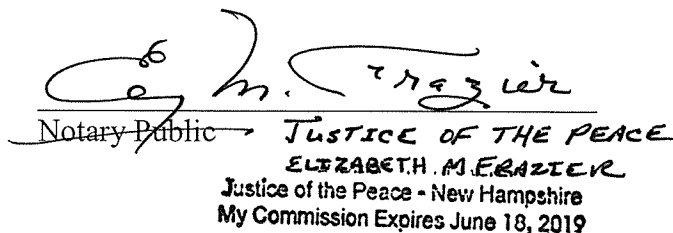 E M. Frazier
Notary Public JUSTICE OF THE PEACE
ELIZABETH M. FRAZIER
Justice of the Peace - New Hampshire
My Commission Expires June 18, 2019